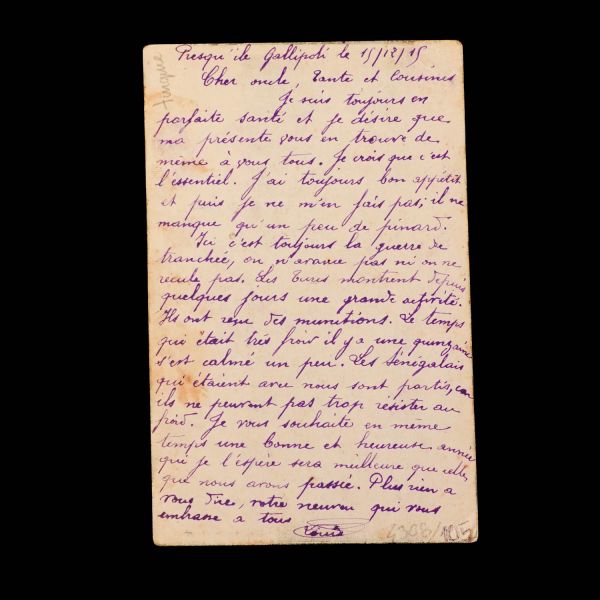 Presqu'île Gallipoli le 15/12/15
turquie
Cher oncle, Tante et Cousins
Je suis toujours en
parfaite santé et je désire que
ma présente vous en trouve de
même à vous tous. Je crois que c'est
l'essentiel. J'ai toujours bon appétit
et puis je ne m'en fais pas; il ne
manque qu'un peu de pinard.
Ici c'est toujours la guerre de
tranchée, on n'avance pas ni on ne
recule pas. Les Turcs montrent depuis
quelques jours une grande activité.
Ils ont reçu des munitions. Le temps
qui était très froid il y a une quinzaine
s'est calmé un peu. Les Sénégalais
qui étaient avec nous sont partis, car
ils ne peuvent pas trop résister au
froid. Je vous souhaite en même
temps une bonne et heureuse année
que je l'espère sera meilleure que celles
que nous avons passée. Plus rien a
vous dire, votre neuveu qui vous
embrasse a tous
Louis